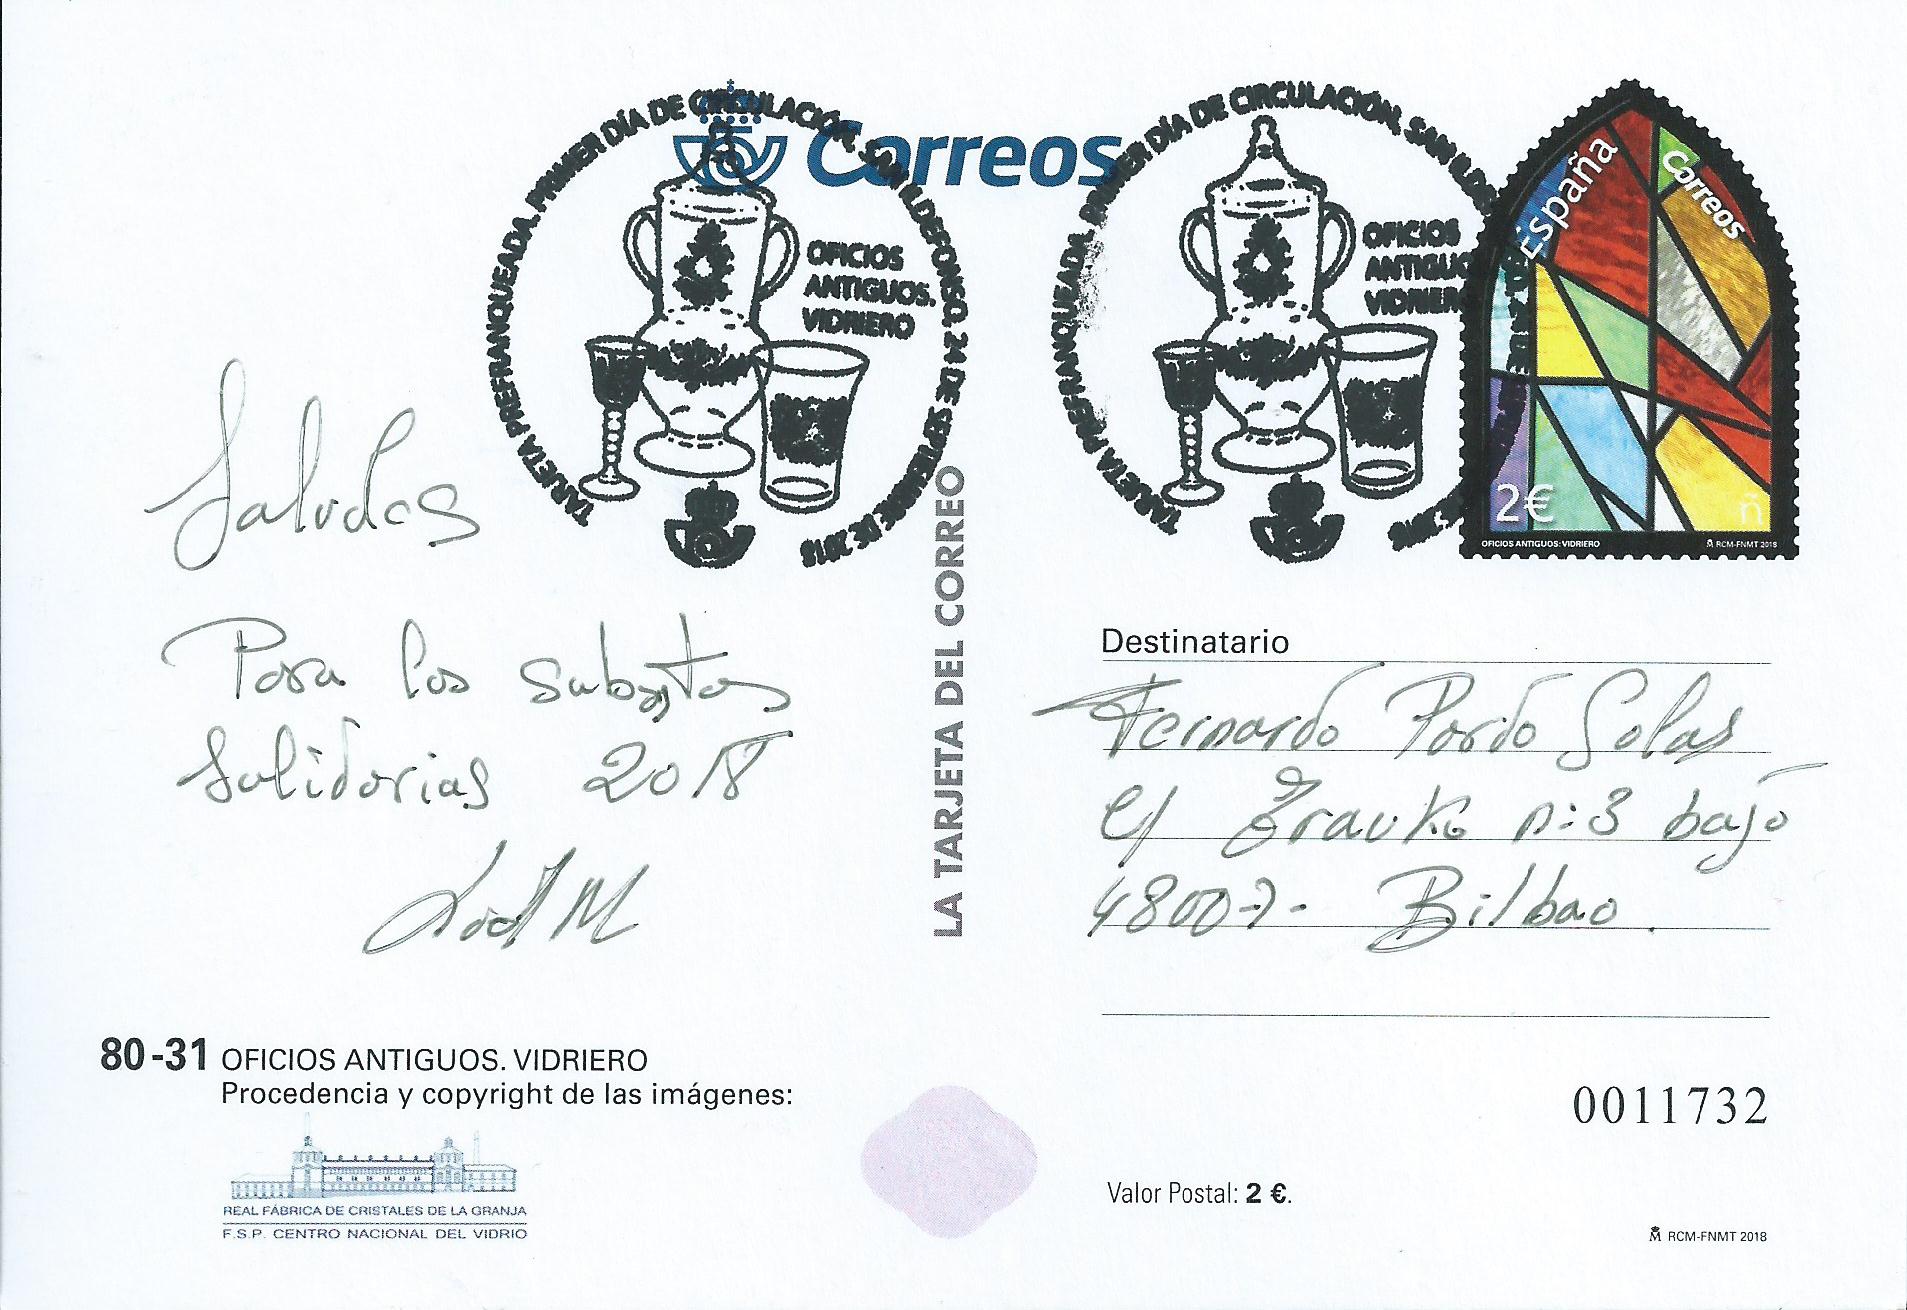 TARJETA PREFRANQUEADA. PRIMER DÍA DE CIRCULACIÓN, SAN ILDEFONSO, 24 DE SEPTIEMBRE DE 2018
OFICIOS
ANTIGUOS.
VIDRIERO
Correos
TARJETA PREFRANQUEADA. PRIMER DÍA DE CIRCULACIÓN, SAN ILDEFONSO, 24 DE SEPTIEMBRE DE 2018
OFICIOS
ANTIGUOS.
VIDRIERO
España
Correos
2€
ñ
OFICIOS ANTIGUOS: VIDRIERO
RCM-FNMT 2018
Saludos
Para las subastas
Solidarias 2018
LA TARJETA DEL CORREO
Destinatario
Fernardo Pardo Solas
c/ Zrauko n: 3 bajo
48007- Bilbao.
80-31 OFICIOS ANTIGUOS. VIDRIERO
Procedencia y copyright de las imágenes:
REAL FÁBRICA DE CRISTALES DE LA GRANJA
F.S.P. CENTRO NACIONAL DEL VIDRIO
0011732
Valor Postal: 2 €.
RCM-FNMT 2018